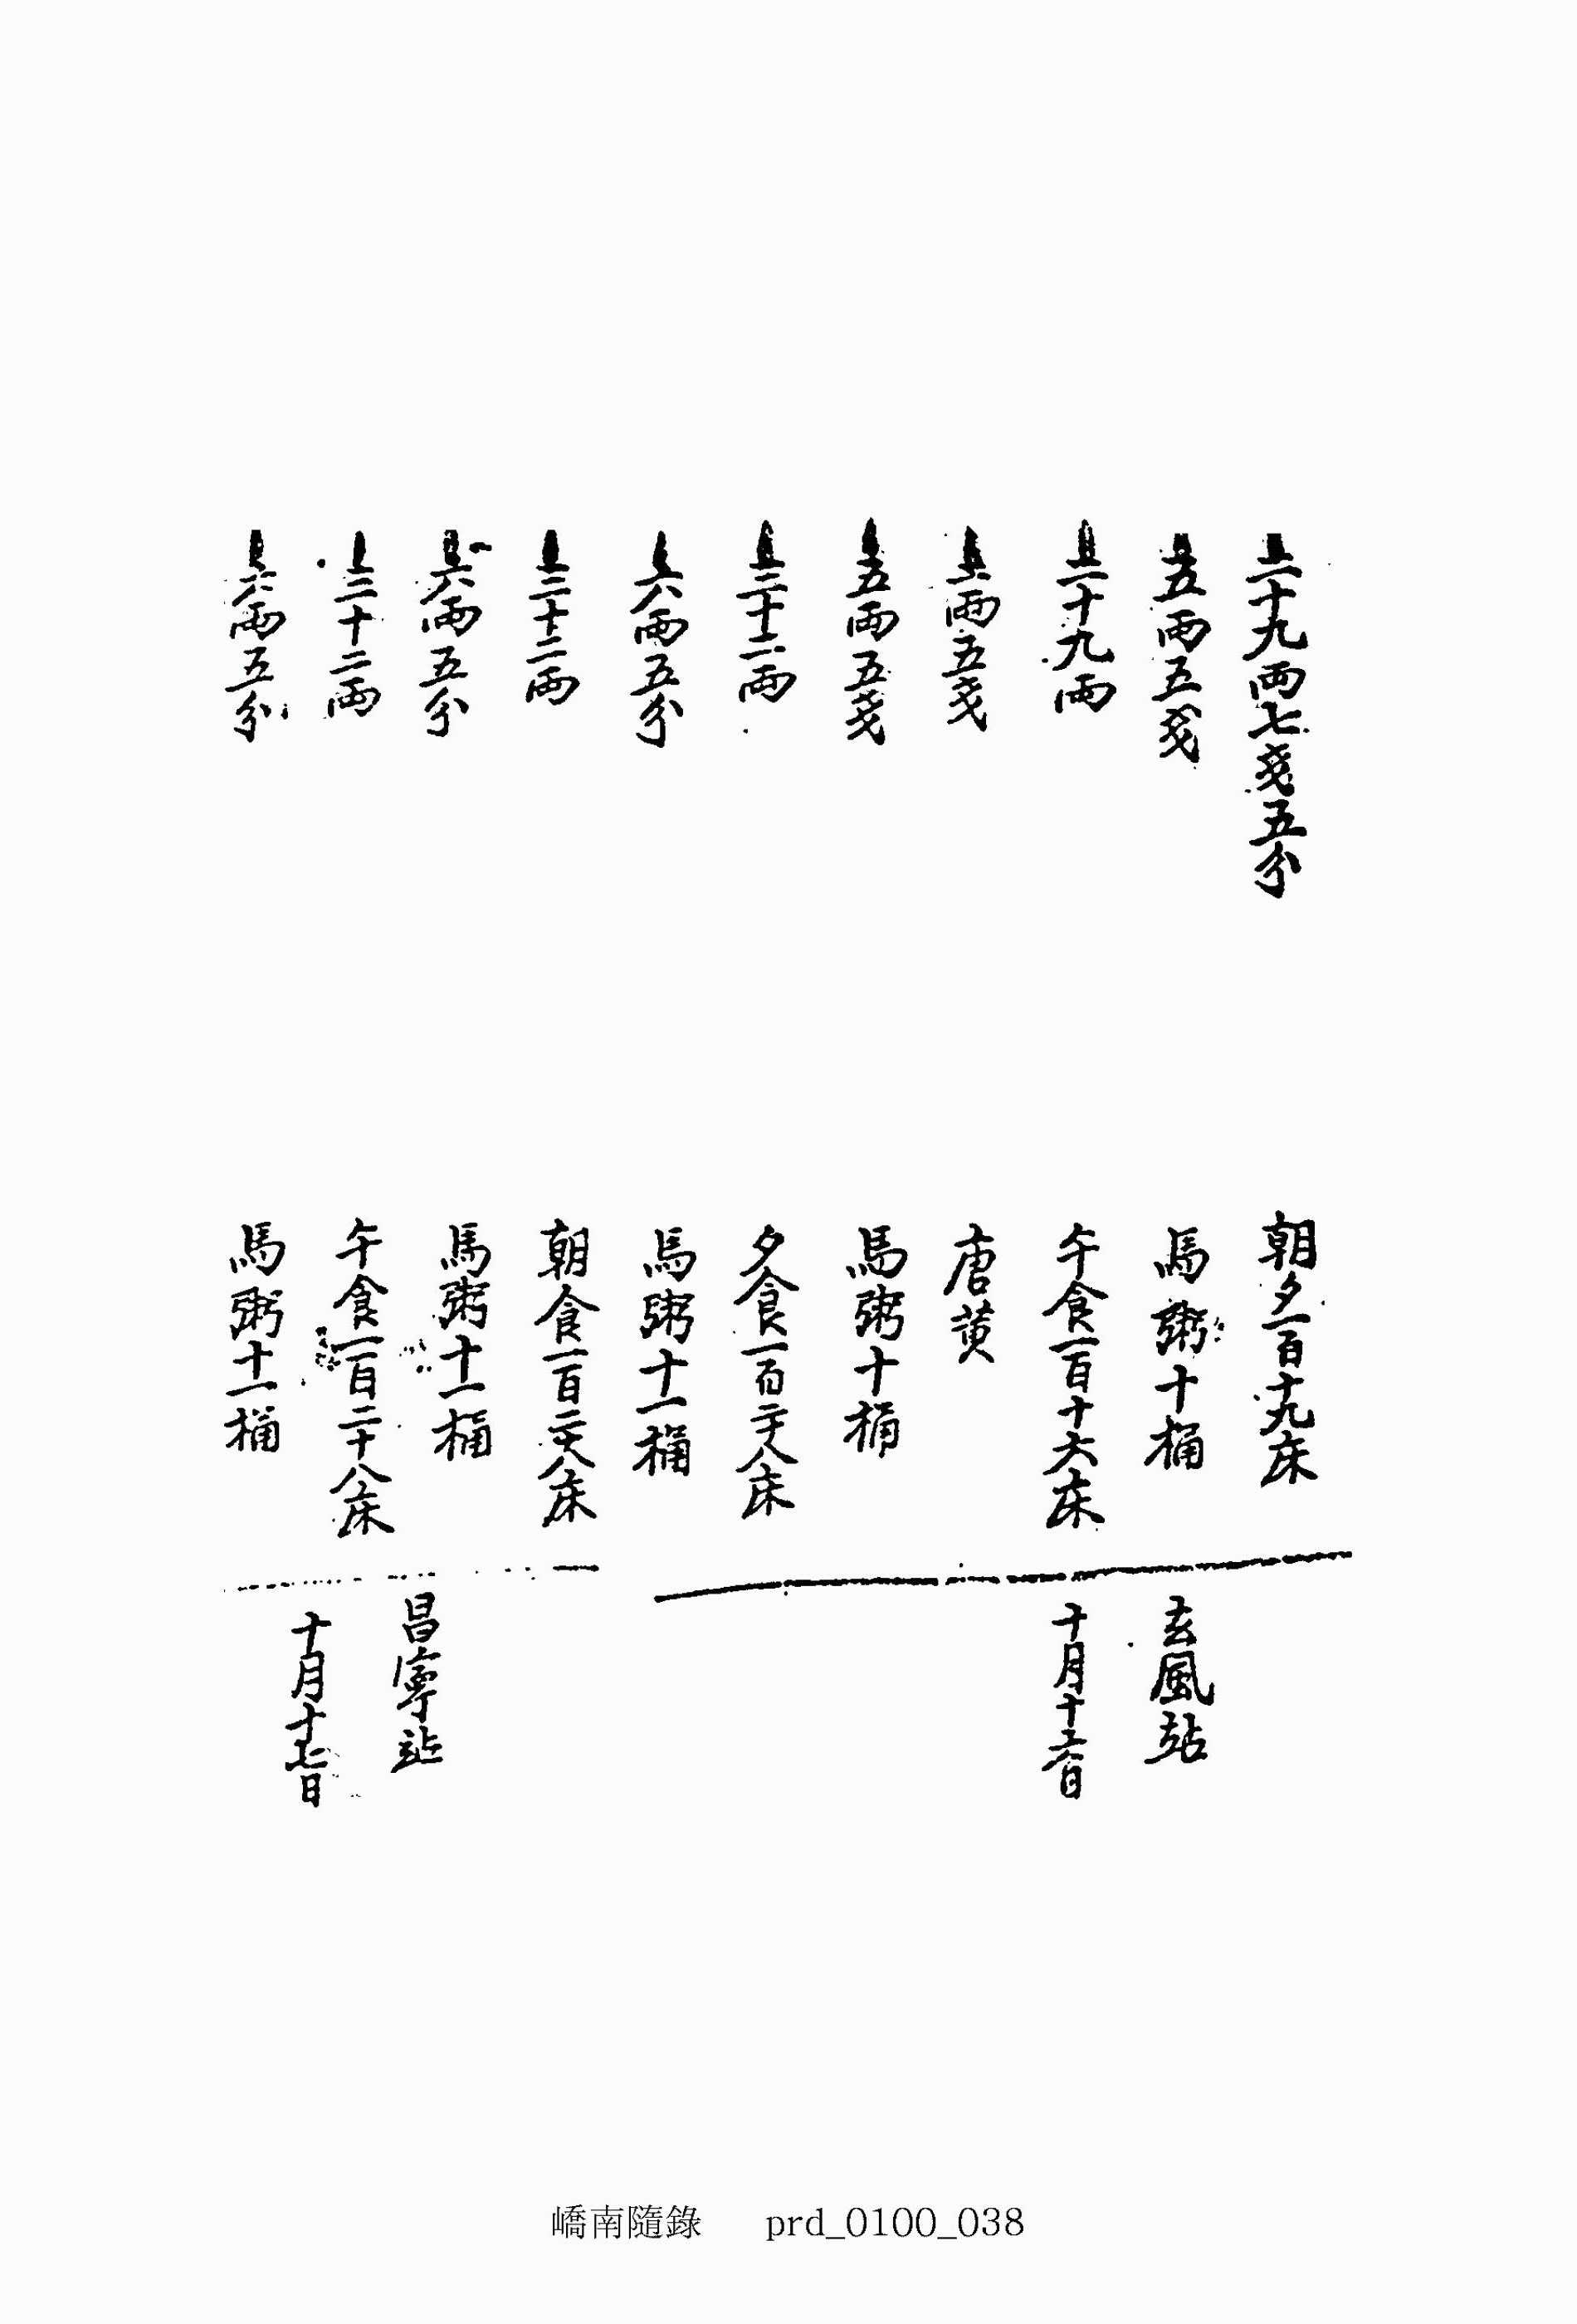 二十九兩七戔五分
五兩五戔
二十九兩
兩五戔
五兩五戔
三十二兩
六兩五分
三十二兩
六兩五分
三十二兩
六兩五分
朝夕一百十九床
馬粥十桶
午食一百十六床
唐黃
馬粥十桶
夕食一百二十八床
馬粥十一桶
朝食一百二十八床
馬粥十一桶
午食一百二十八床
馬粥十一桶
玄風站
十月十六日
昌寧站
十月十七日
嶠南隨錄 prd_0100_038